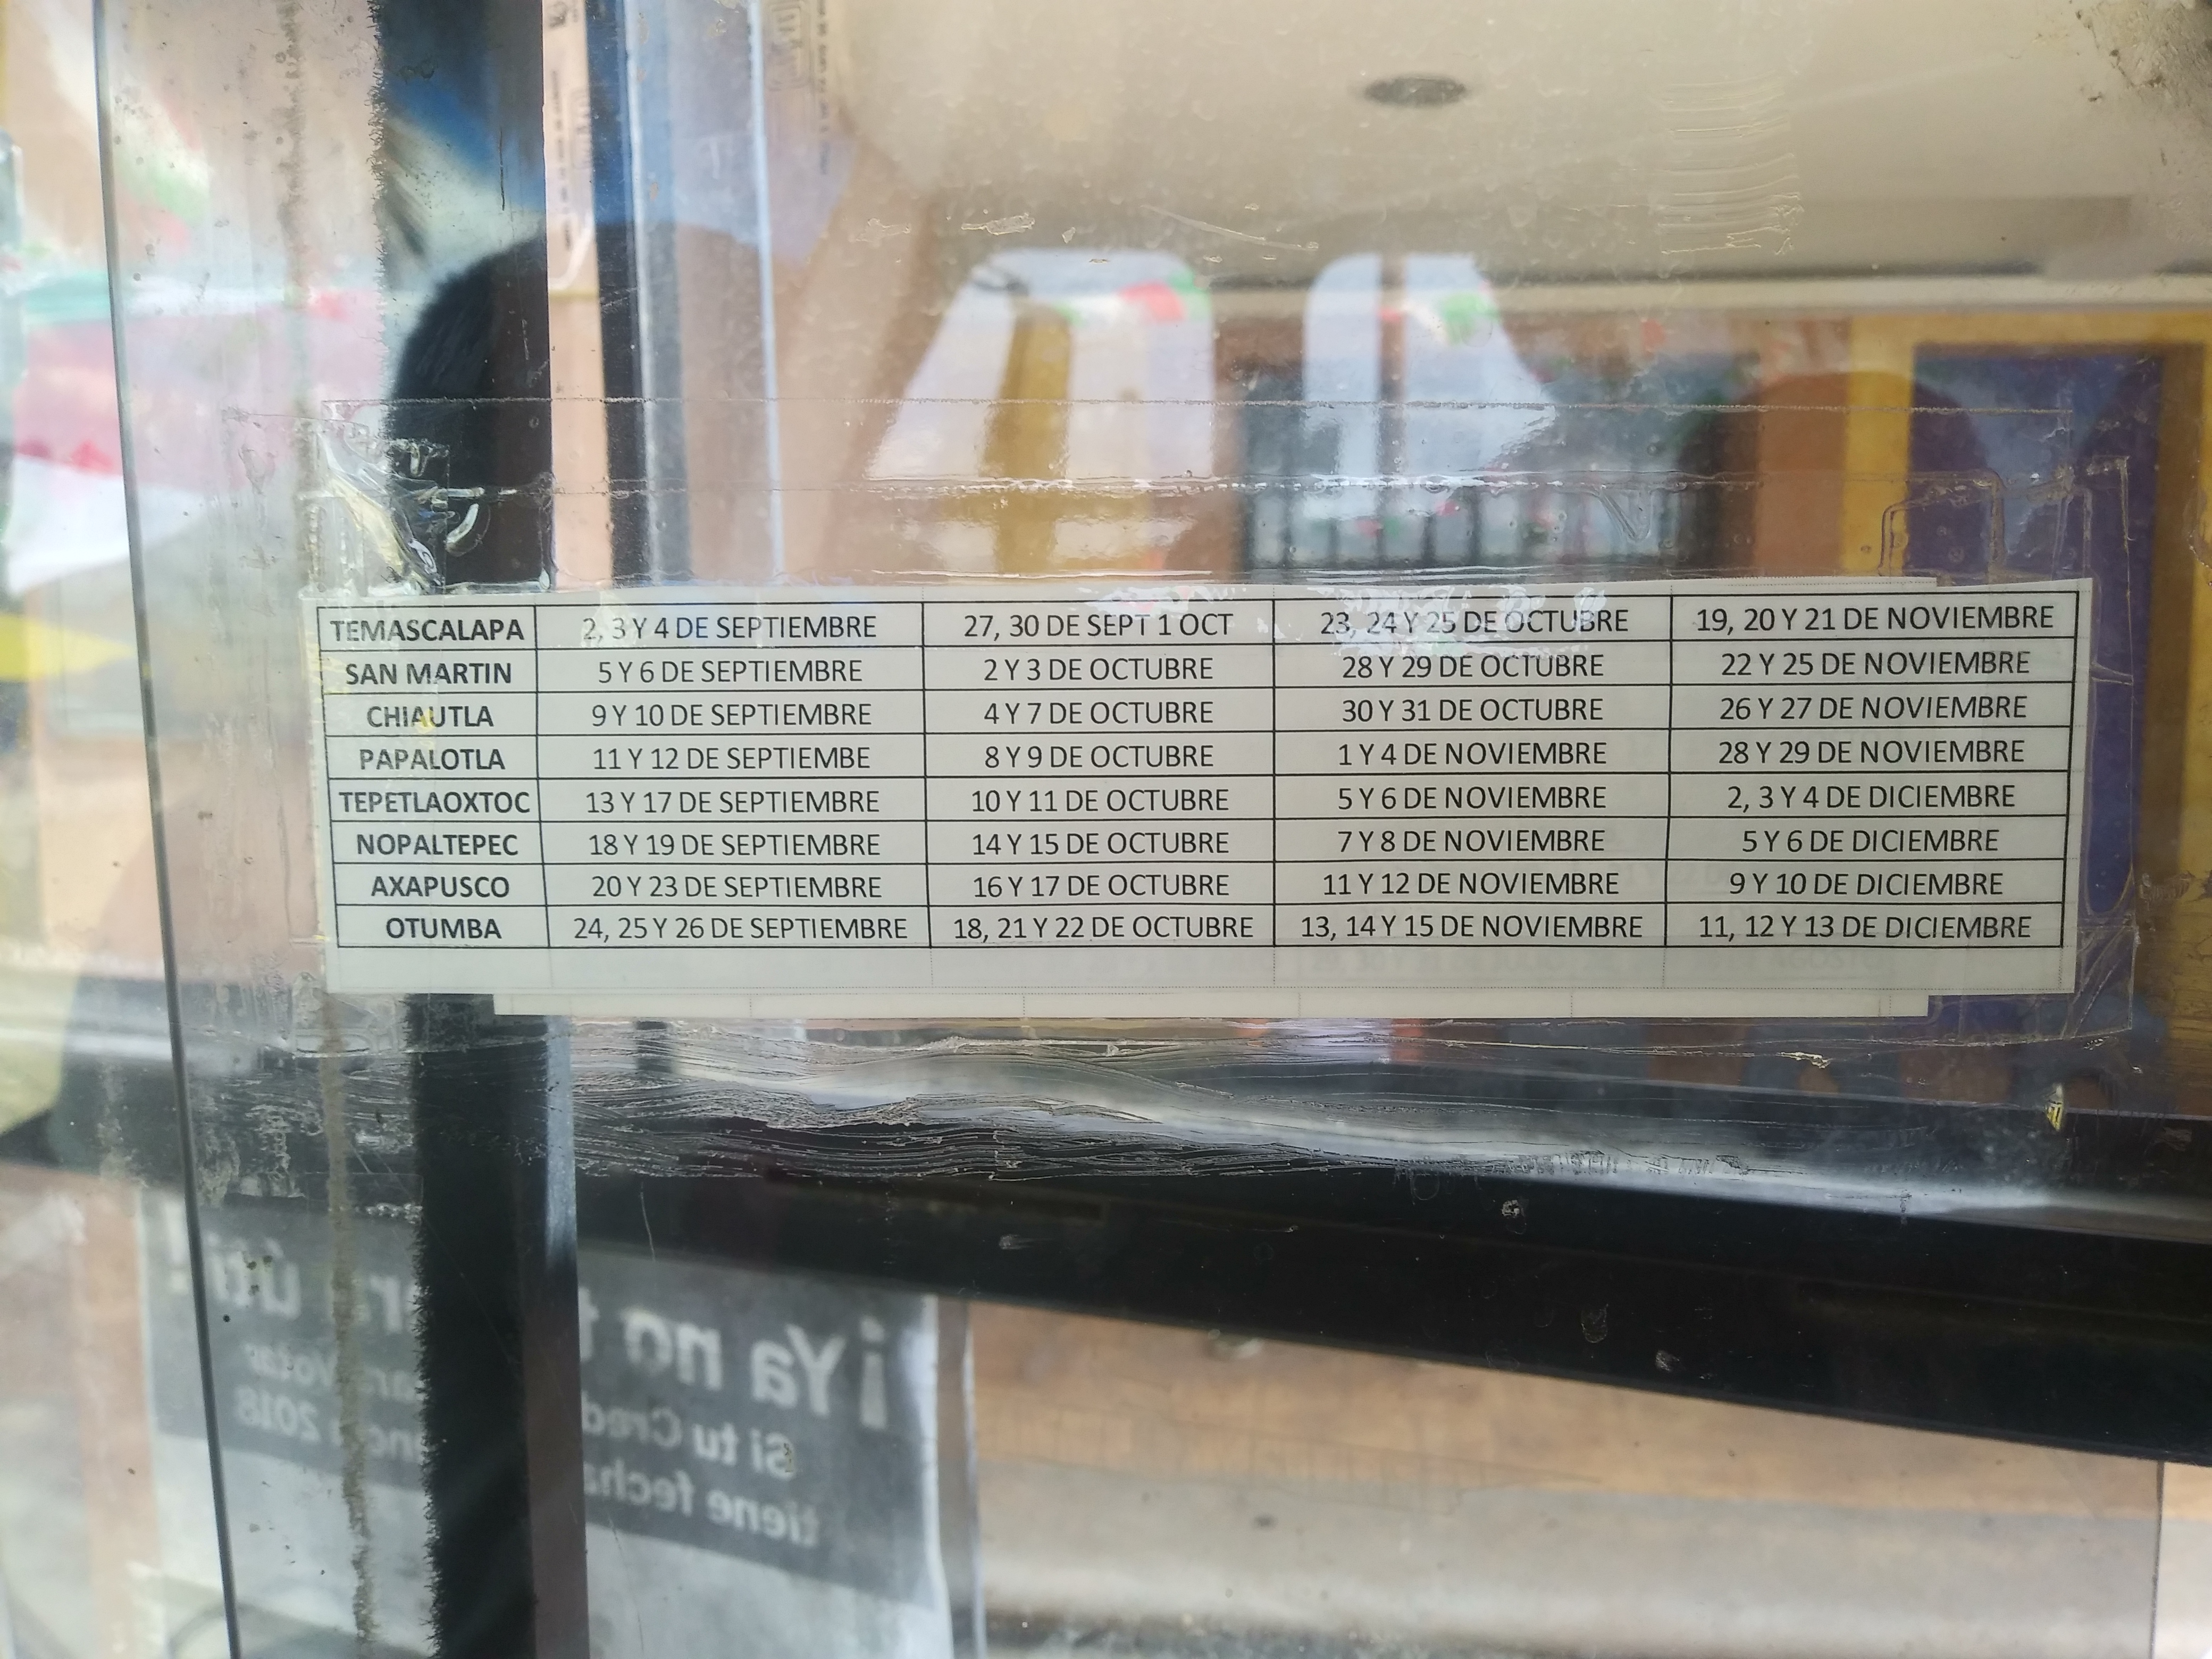 TEMASCALAPA 2, 3 Y 4 DE SEPTIEMBRE 27, 30 DE SEPT 1 OCT 23, 24 Y 25 DE OCTUBRE 19, 20 Y 21 DE NOVIEMBRE
SAN MARTIN 5 Y 6 DE SEPTIEMBRE 2 Y 3 DE OCTUBRE 28 Y 29 DE OCTUBRE 22 Y 25 DE NOVIEMBRE
CHIAUTLA 9 Y 10 DE SEPTIEMBRE 4 Y 7 DE OCTUBRE 30 Y 31 DE OCTUBRE 26 Y 27 DE NOVIEMBRE
PAPALOTLA 11 Y 12 DE SEPTIEMBE 8 Y 9 DE OCTUBRE 1 Y 4 DE NOVIEMBRE 28 Y 29 DE NOVIEMBRE
TEPETLAOXTOC 13 Y 17 DE SEPTIEMBRE 10 Y 11 DE OCTUBRE 5 Y 6 DE NOVIEMBRE 2, 3 Y 4 DE DICIEMBRE
NOPALTEPEC 18 Y 19 DE SEPTIEMBRE 14 Y 15 DE OCTUBRE 7 Y 8 DE NOVIEMBRE 5 Y 6 DE DICIEMBRE
AXAPUSCO 20 Y 23 DE SEPTIEMBRE 16 Y 17 DE OCTUBRE 11 Y 12 DE NOVIEMBRE 9 Y 10 DE DICIEMBRE
OTUMBA 24, 25 Y 26 DE SEPTIEMBRE 18, 21 Y 22 DE OCTUBRE 13, 14 Y 15 DE NOVIEMBRE 11, 12 Y 13 DE DICIEMBRE
¡Ya no
Si tu
tiene
2018